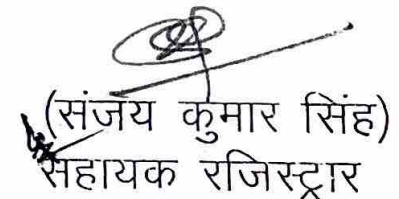 (संजय कुमार सिंह)
सहायक रजिस्ट्रार